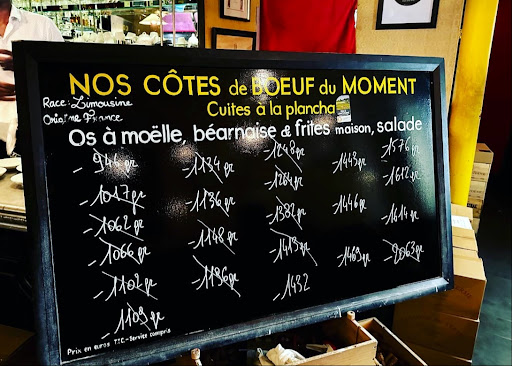 NOS CÔTES de BOEUF du MOMENT
Race: Limousine
Cuites à la plancha
Origine France
Os à moëlle, béarnaise & frites maison, salade
- 944 gr
- 1017 gr
- 1062 gr
- 1066 gr
- 1102 gr
- 1109 gr
- 1134 gr
- 1136 gr
- 1148 gr
- 1196 gr
- 1248 gr
- 1264 gr
- 1382 gr
- 1419 gr
- 1432
- 1443 gr
- 1446 gr
- 1469 gr
- 1576 gr
- 1612 gr
- 1614 gr
- 2063 gr
Prix en euros TTC - Service compris